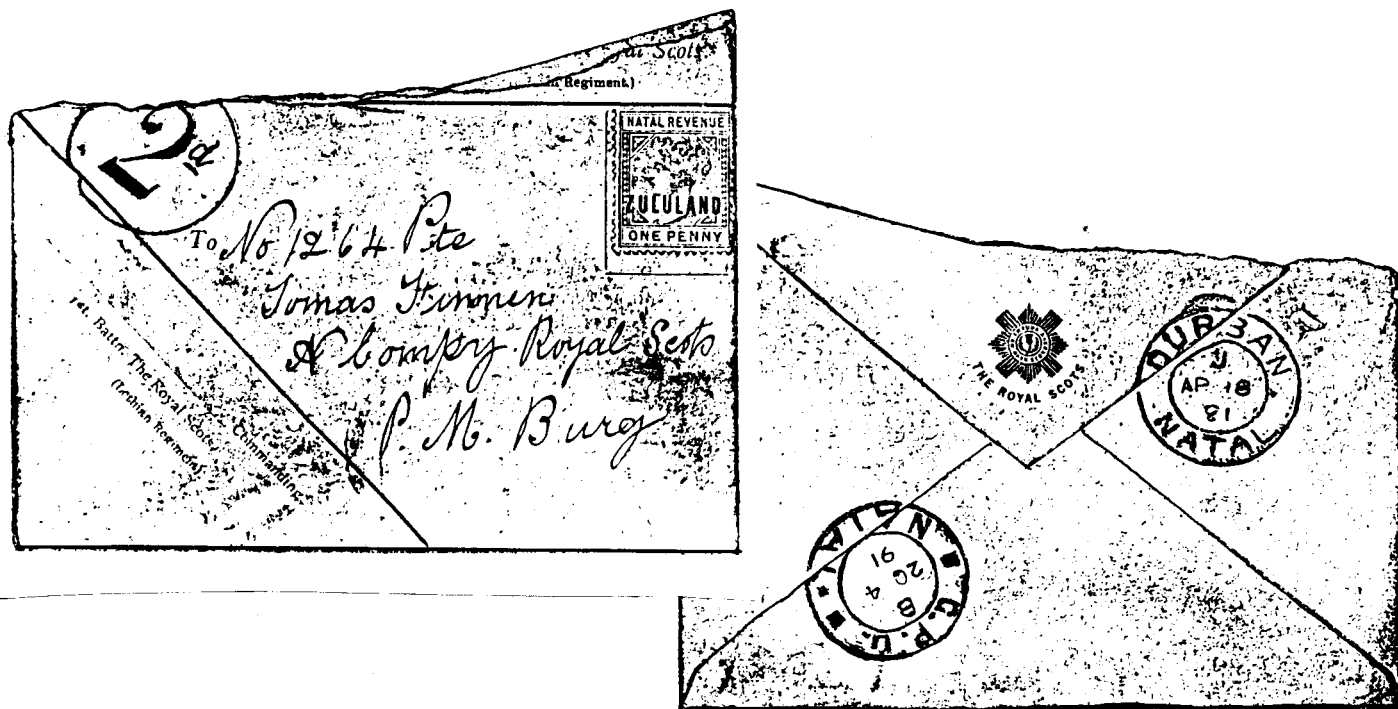 Scots
Regiment.)
2
1d
NATAL REVENUE
ZULULAND
ONE PENNY
To No 1264 Pte
Tomas Finnen
A Compy Royal Scots
P. M. Burg
Commanding
1st. Battn. The Royal Scots
(Lothian Regiment)
THE ROYAL SCOTS
DURBAN
AP 18
91
NATAL
NATAL
G.P.O.
B
4
20
91